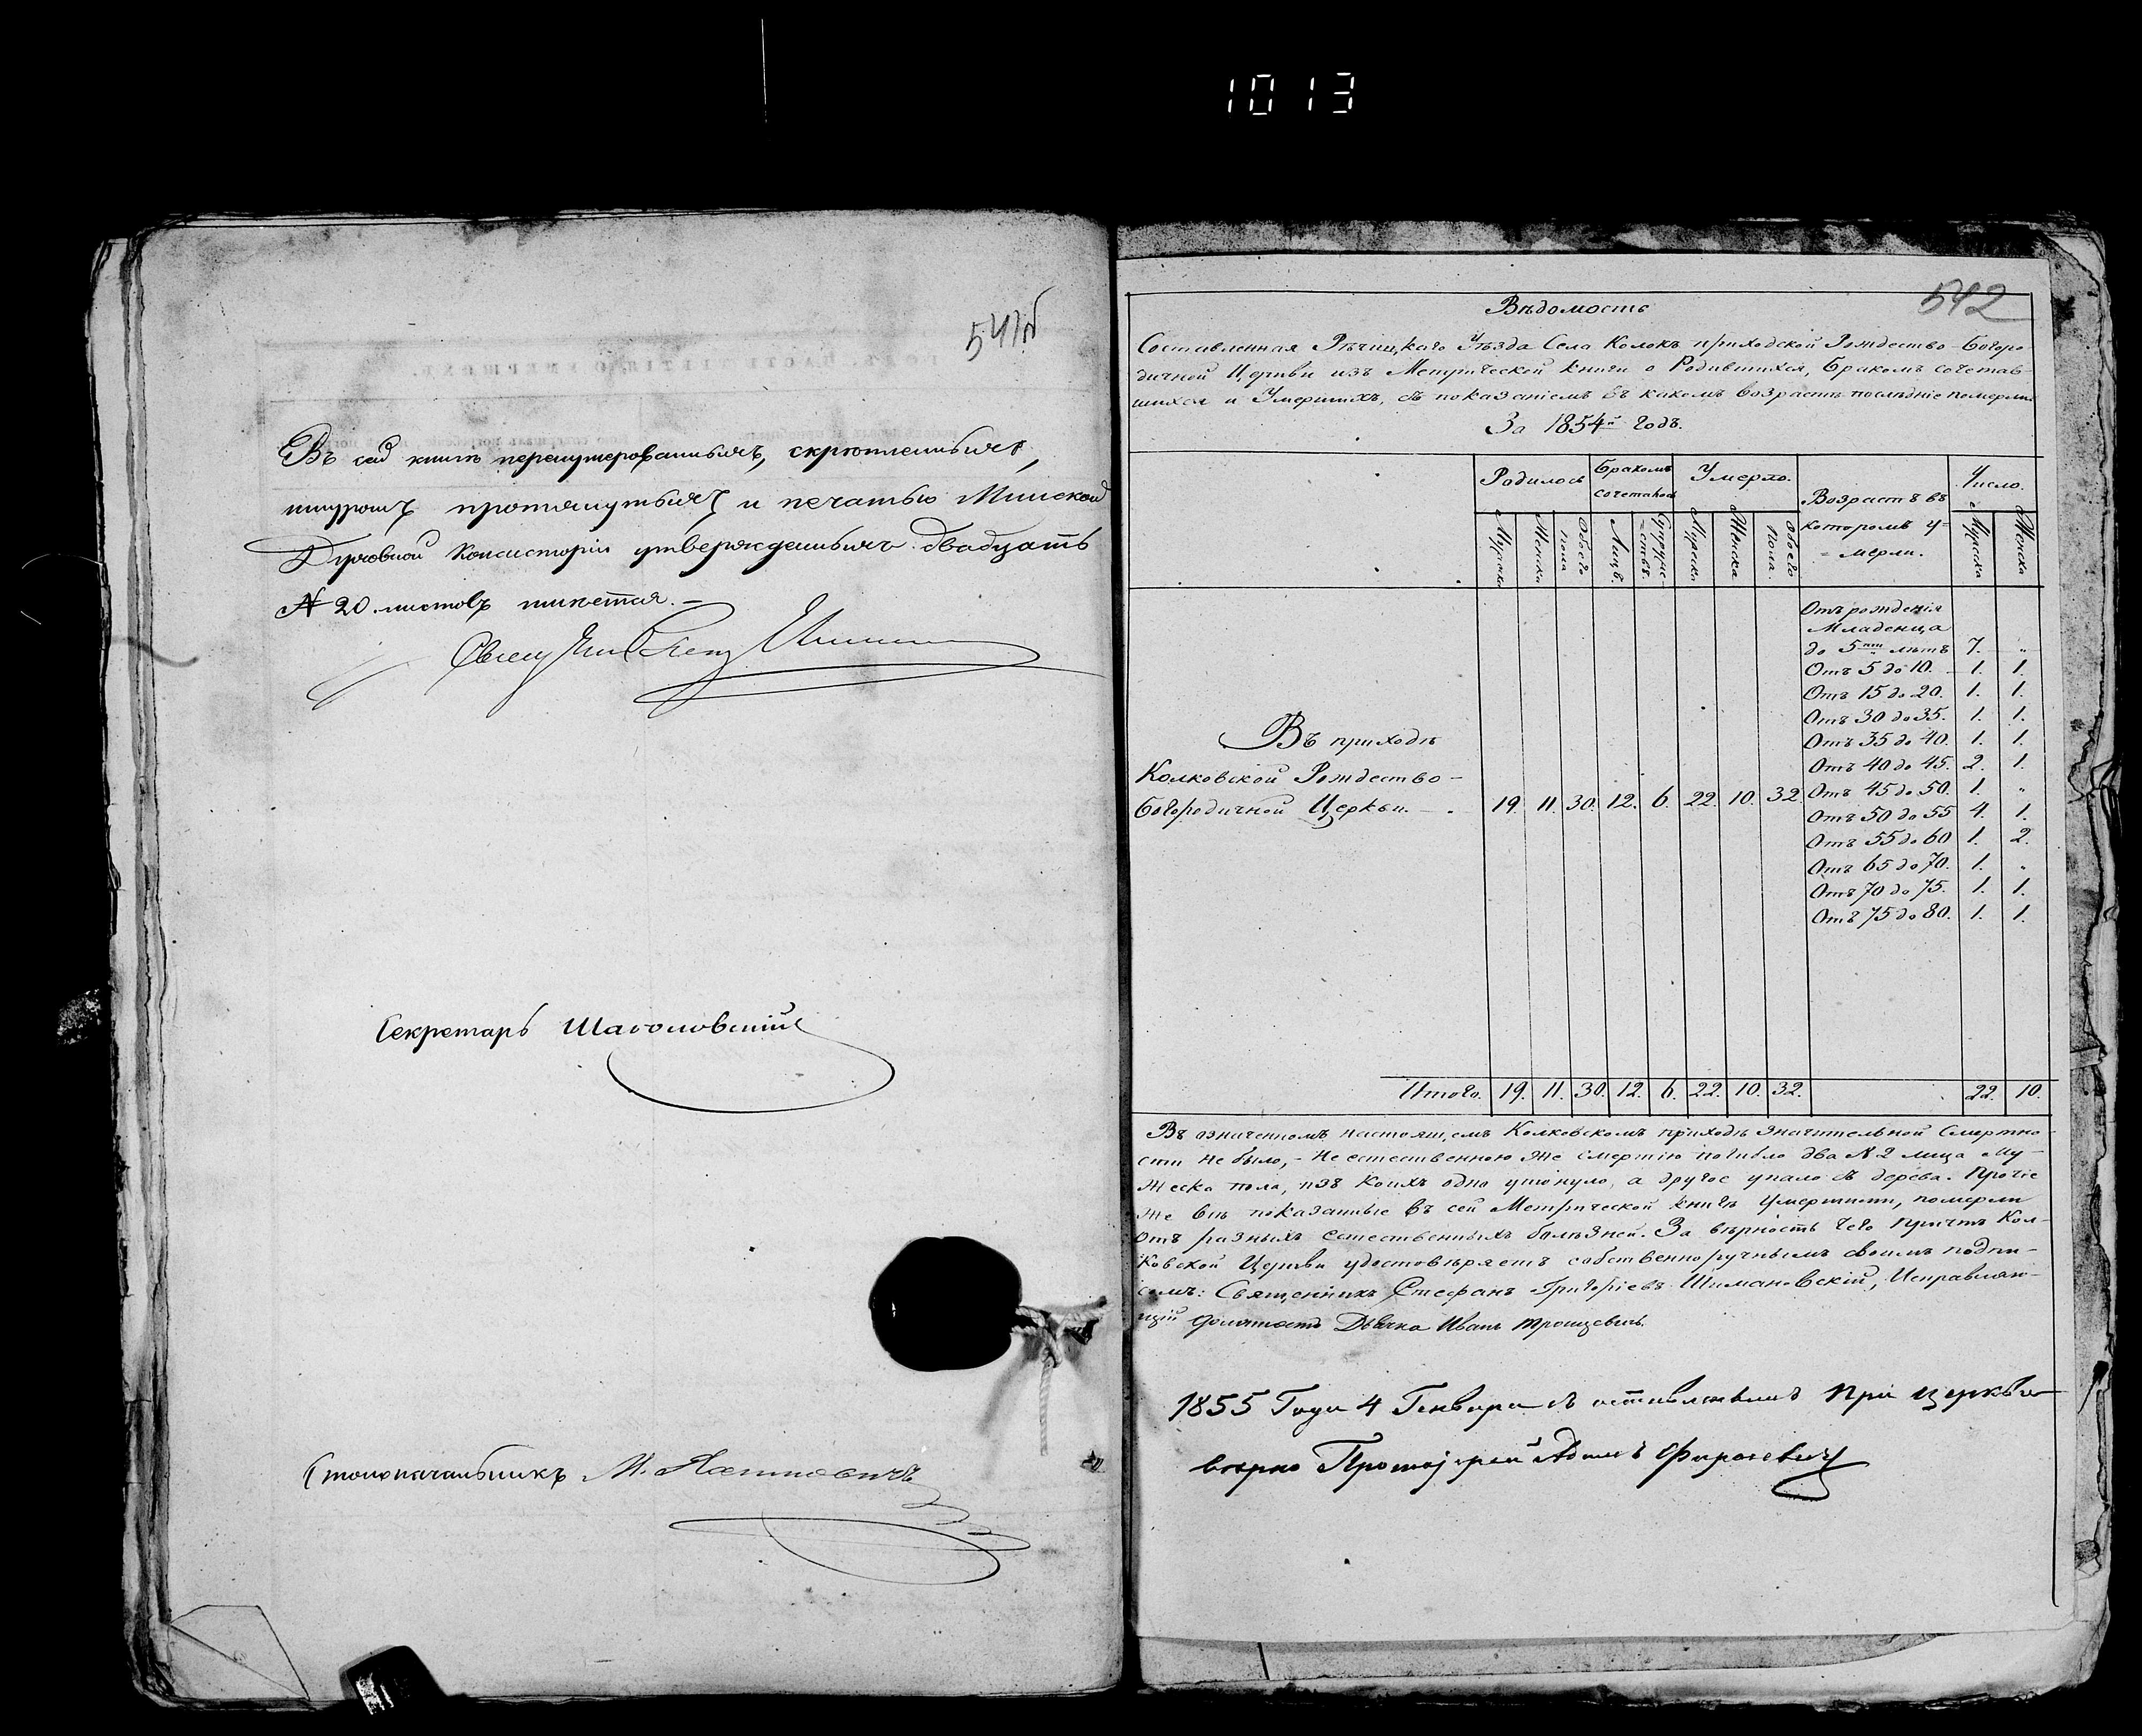 1013
541об
Въ сей книгѣ перенумерованныхъ, скрѣпленныхъ,
шнуромъ протянутыхъ и печатью Минской
Духовной Консисторіи утвержденныхъ двадцать
№ 20. листовъ имѣется. –
Секретарь
Столоначальникъ М.
542
Вѣдомость
Составленная Рѣчицкаго Уѣзда Села Колокъ приходской Рождество-Богоро
дичной Церкви изъ Метрической книги о Родившихся, Бракомъ сочетав-
шихся и Умершихъ, съ показаніемъ въ какомъ возрастѣ послѣдніе померли
За 1854й годъ.
Родилось Бракомъ сочеталось Умерло. Возрастъ въ которомъ у-мерли. Число.
Мужеска Женска Обоего пола Лицъ. Супружествъ. Мужеска Женска Обоего Пола. Мужеска Женска
Отъ рожденія
Младенца
до 5ти лѣтъ 7. „
Отъ 5 до 10. 1. 1.
Отъ 15 до 20. 1. 1.
Отъ 30 до 35. 1. 1.
Отъ 35 до 40. 1. 1.
Отъ 40 до 45. 2. 1.
Отъ 45 до 50. 1. „
Отъ 50 до 55 4. 1.
Отъ 55 до 60 1. 2.
Отъ 65 до 70. 1. „
Отъ 70 до 75. 1. 1.
Отъ 75 до 80. 1. 1.
Въ приходѣ
Колковской Рождество-
Богородичной Церкви. – 19. 11. 30. 12. 6. 22. 10. 32.
Итого. 19. 11. 30. 12. 6. 22. 10. 32. 22. 10.
Въ означенномъ настоящемъ Колковскомъ приходѣ значительной Смертно
сти не было, – Не естественною же смертію погибло два № 2 лица му-
жеска пола, изъ коихъ одно утонуло, а другое упало съ дерева. Прочіе
же всѣ показанные въ сей Метрической книгѣ умершими, померли
отъ разныхъ естественныхъ болѣзней. За вѣрность чего причтъ Кол-
ковской Церкви удостовѣряетъ собственноручнымъ своимъ подпи-
сомъ: Священникъ Стефанъ Григоріевъ Шимановскій, Исправляю-
щій должность Дьячка Иванъ
1855 Года 4 Генваря съ оставленнымъ при церкви
вѣрно Протоіерей Адамъ